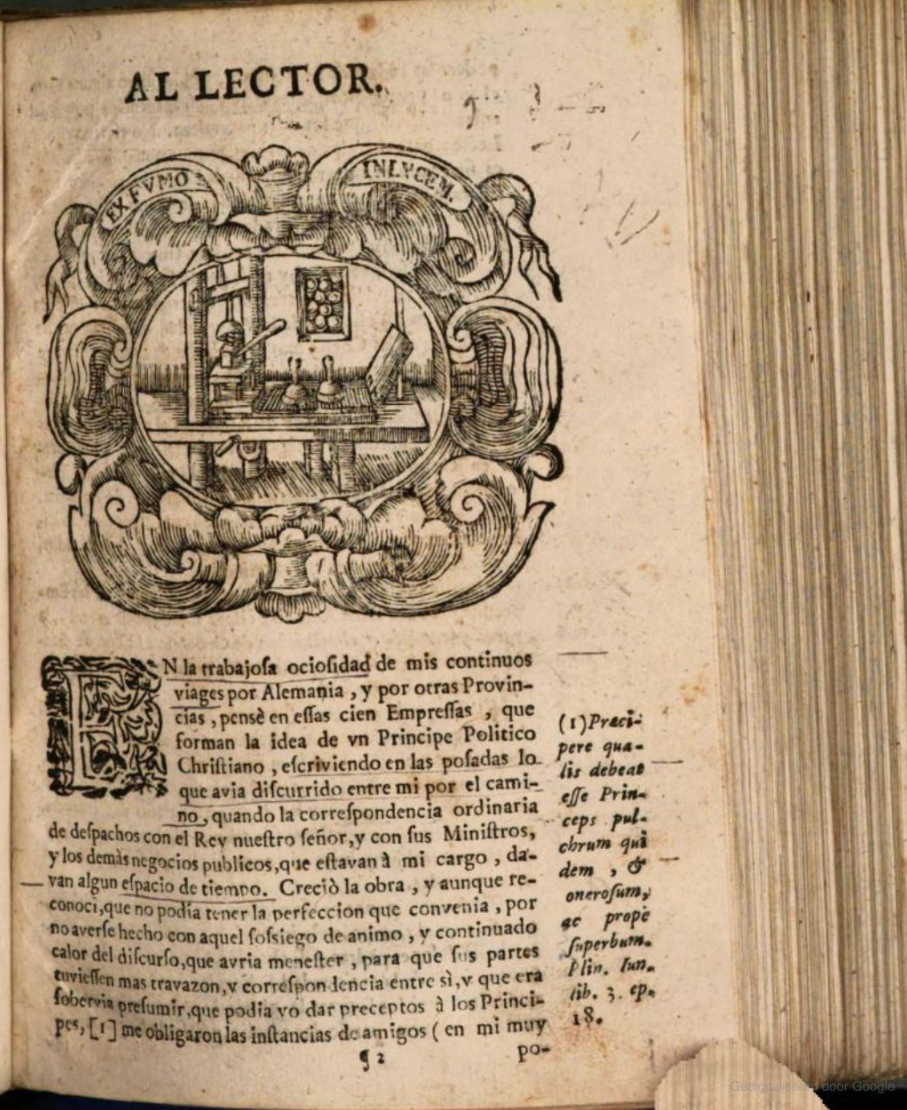 AL LECTOR.
EX FVMO
IN LVCEM.
EN la trabajosa ociosidad de mis continuos
viages por Alemania, y por otras Provin-
cias, pensè en essas cien Empressas, que
forman la idea de vn Principe Politico
Christiano, escriviendo en las posadas lo
que avia discurrido entre mi por el cami-
no, quando la correspondencia ordinaria
de despachos con el Rey nuestro señor, y con sus Ministros,
y los demàs negocios publicos, que estavan à mi cargo, da-
van algun espacio de tiempo. Creciò la obra, y aunque re-
conoci, que no podia tener la perfeccion que convenia, por
no averse hecho con aquel sossiego de animo, y continuado
calor del discurso, que avria menester, para que sus partes
tuviessen mas travazon, y correspondencia entre sì, y que era
sobervia presumir, que podia yo dar preceptos à los Princi-
pes, [1] me obligaron las instancias de amigos (en mi muy
¶ 2
po-
(1) Præci-
pere qua-
lis debeat
esse Prin-
ceps pul-
chrum qui
dem, &
onerosum,
ac prope
superbum.
Plin. Iun.
lib. 3. ep.
18.